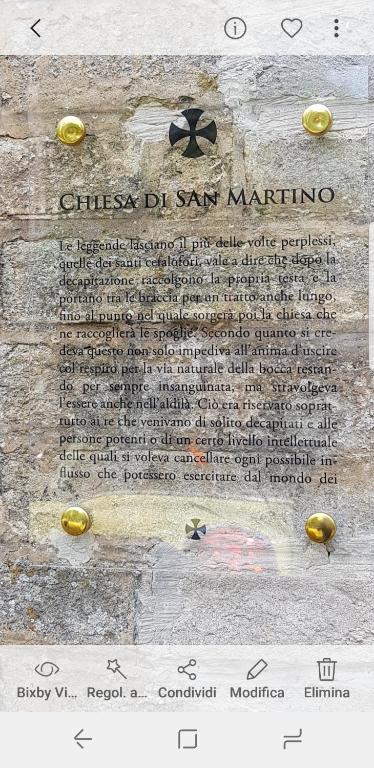 CHIESA DI SAN MARTINO
Le leggende lasciano il più delle volte perplessi,
quelle dei santi cefalofori, vale a dire che dopo la
decapitazione raccolgono la propria testa e la
portano tra le braccia per un tratto anche lungo,
fino al punto nel quale sorgerà poi la chiesa che
ne raccoglierà le spoglie. Secondo quanto si cre-
deva questo non solo impediva all'anima d'uscire
col respiro per la via naturale della bocca restan-
do per sempre insanguinata, ma stravolgeva
l'essere anche nell'aldilà. Ciò era riservato soprat-
tutto ai re che venivano di solito decapitati e alle
persone potenti o di un certo livello intellettuale
delle quali si voleva cancellare ogni possibile in-
flusso che potessero esercitare dal mondo dei
Bixby Vi... Regol. a... Condividi Modifica Elimina